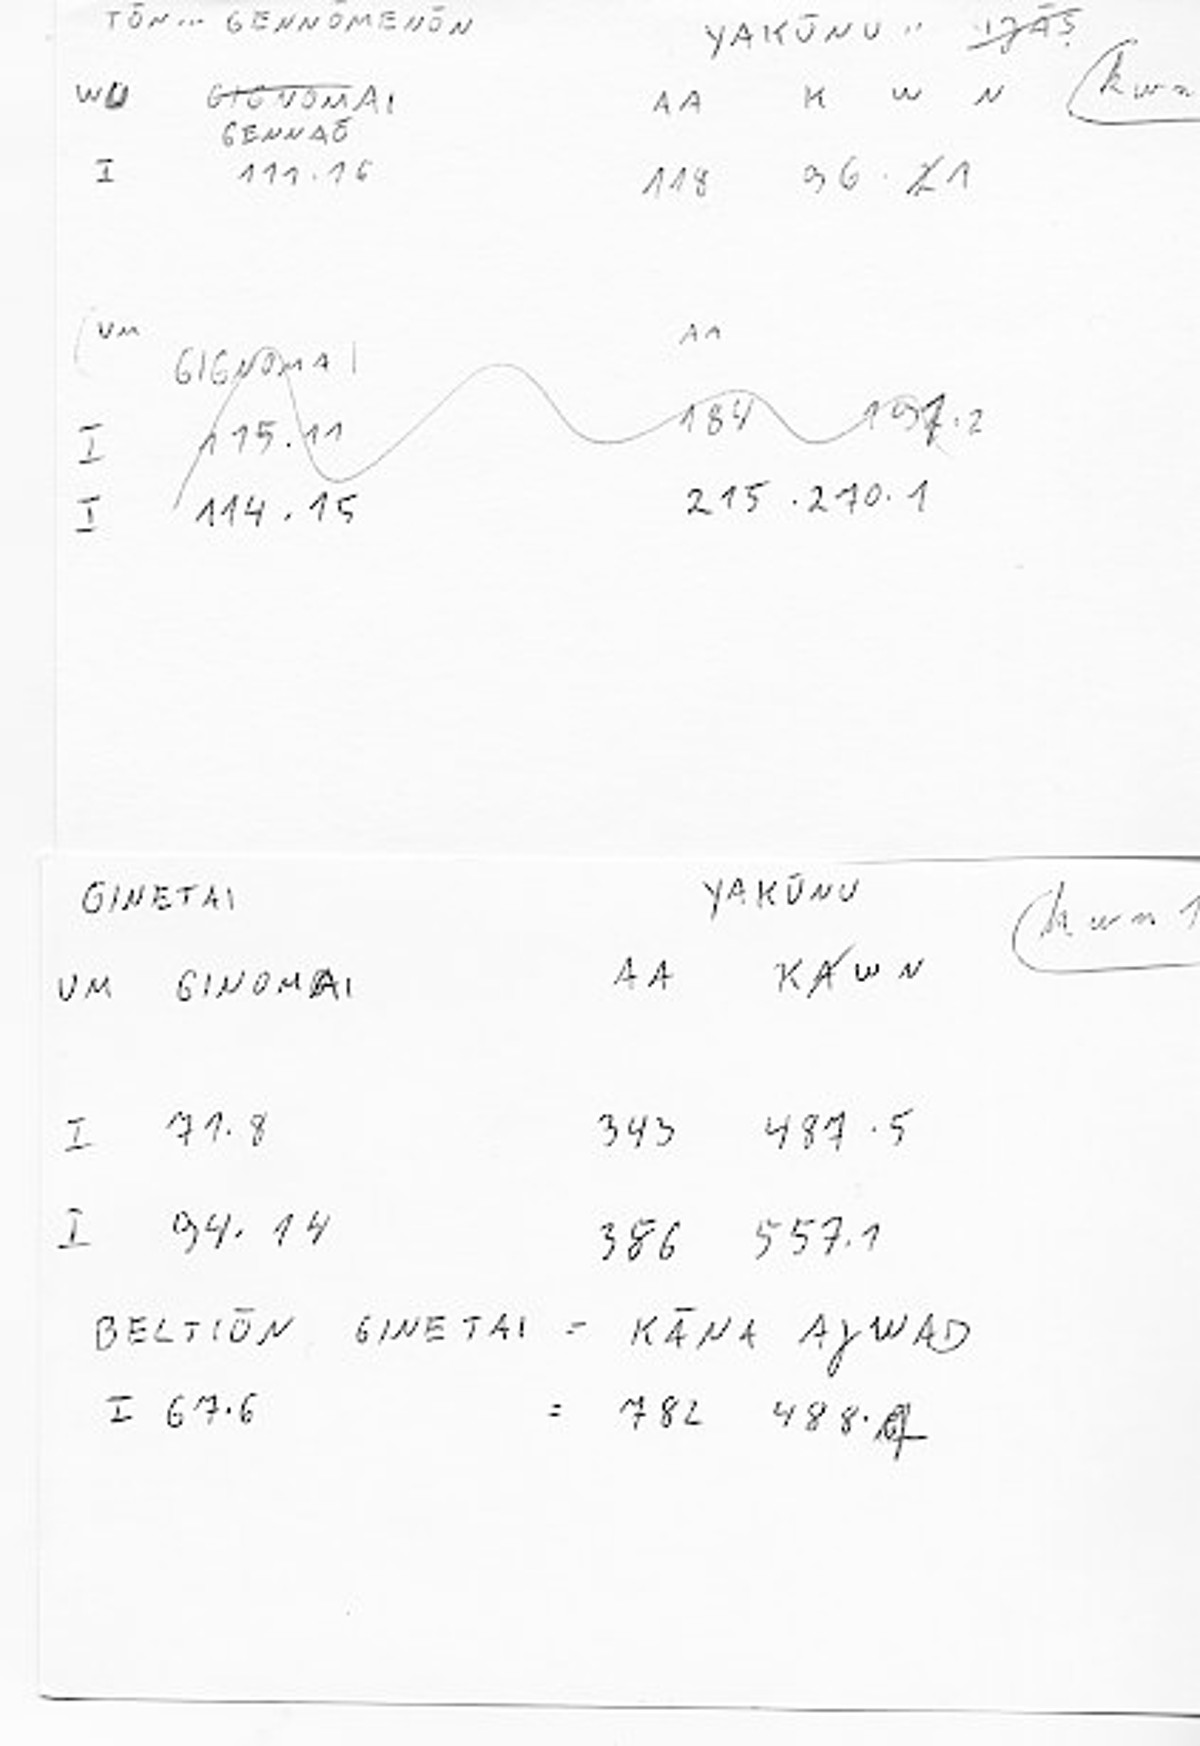 TŌN... GENNŌMENŌN YAKŪNU..
WU GIGNOMAI AA K W N (kwn
GENNAŌ
I 111.16 118 96.21
(UM AA
GIGNOMAI
I 115.11 184
I 114.15 215.270.1
GINETAI YAKŪNU (kwn 1
UM GINOMAI AA KAWN
I 71.8 343 487.5
I 94.14 386 557.1
BELTIŌN GINETAI = KĀNA AJWAD
I 67.6 = 782 488.